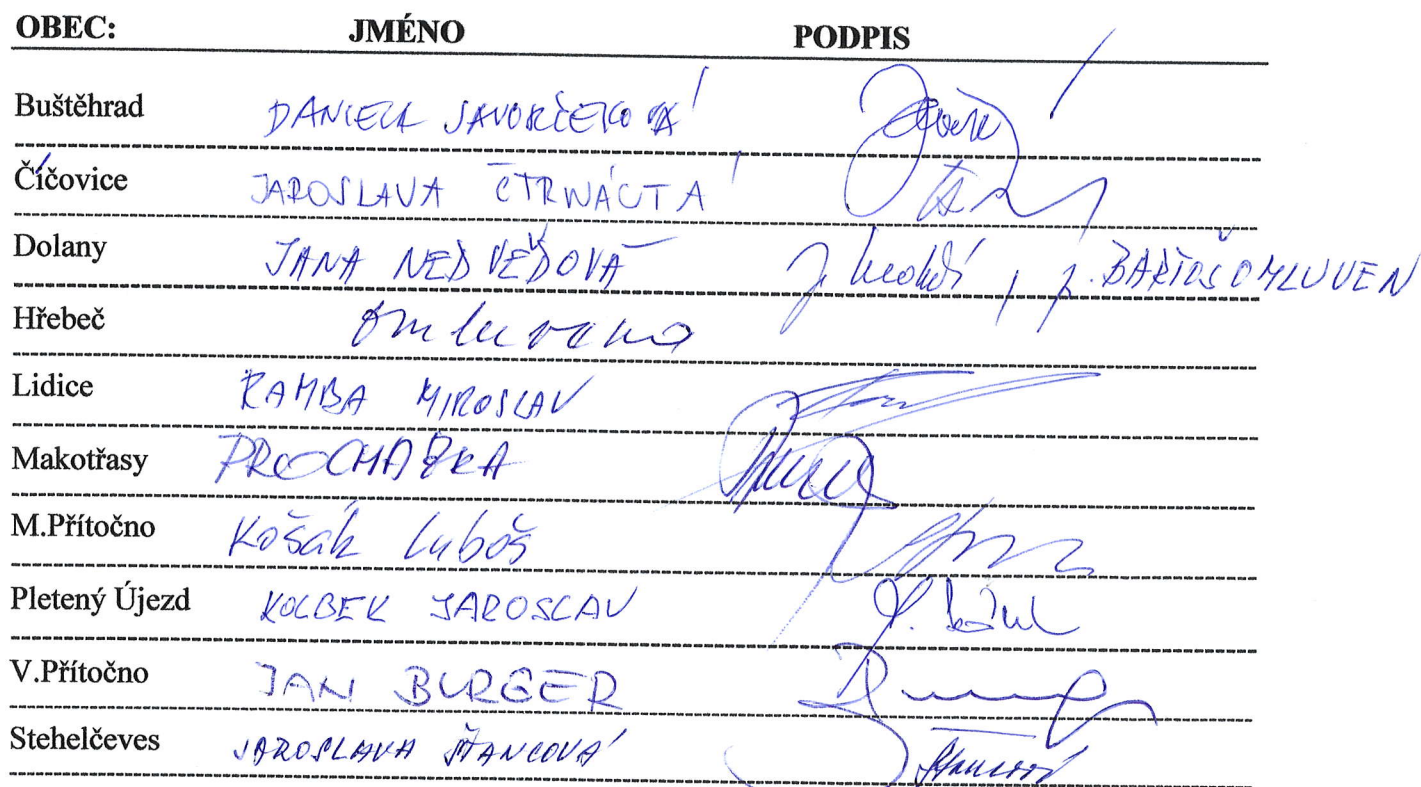 OBEC: JMÉNO PODPIS
Buštěhrad DANIELA JAVORČEKOVÁ
Číčovice JAROSLAVA ČTRNÁCTÁ
Dolany JANA NEDVĚDOVÁ , p. BARTOŠ OMLUVEN
Hřebeč omluvena
Lidice RAMBA MIROSLAV
Makotřasy PROCHÁZKA
M.Přítočno Košák Luboš
Pletený Újezd KOLBEK JAROSLAV
V.Přítočno JAN BURGER
Stehelčeves JAROSLAVA ŠTANCOVÁ